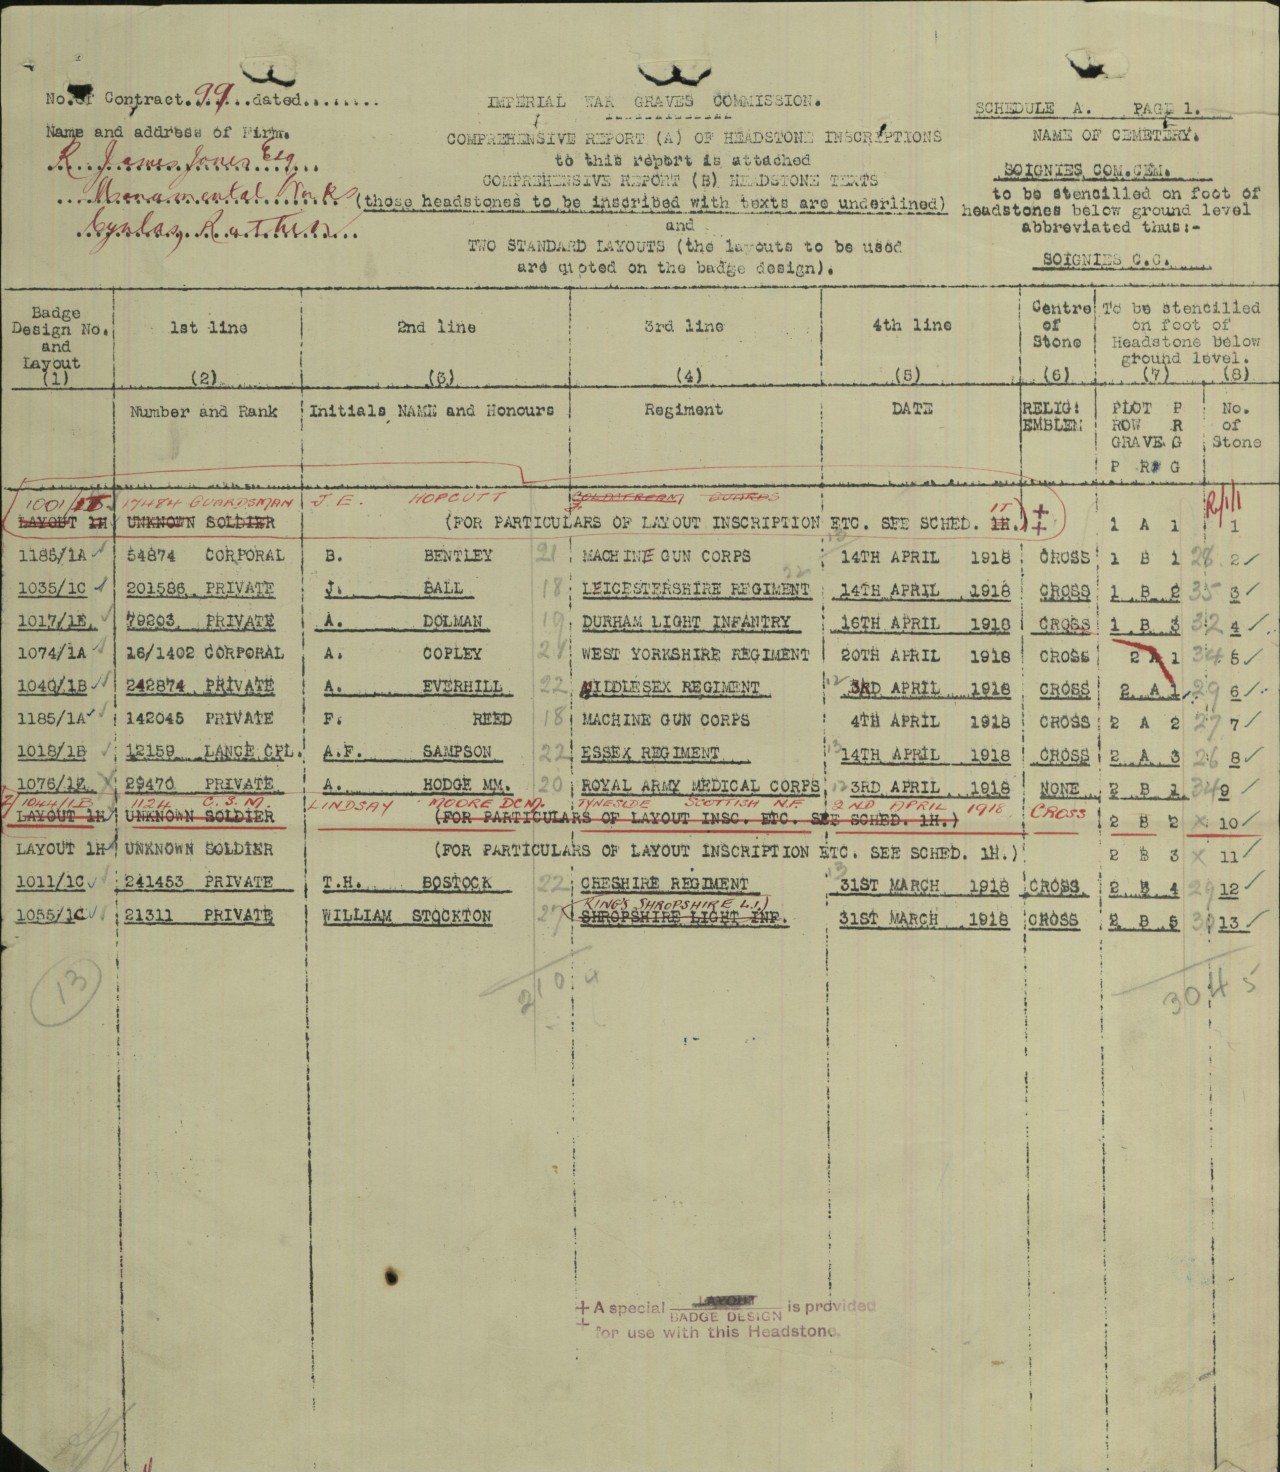 No. of Contract. 99 dated........
IMPERIAL WAR GRAVES COMMISSION.
SCHEDULE A. PAGE 1.
Name and address of Firm.
COMPREHENSIVE REPORT (A) OF HEADSTONE INSCRIPTIONS
NAME OF CEMETERY.
R. James Jones Esq
to this report is attached
SOIGNIES COM.CEM.
Monumental Works
COMPREHENSIVE REPORT (B) HEADSTONE TEXTS
to be stencilled on foot of
(those headstones to be inscribed with texts are underlined)
headstones below ground level
and
abbreviated thus:-
TWO STANDARD LAYOUTS (the layouts to be used
are quoted on the badge design).
SOIGNIES C.C.
Badge Design No. and Layout (1)
1st line (2)
2nd line (3)
3rd line (4)
4th line (5)
Centre of Stone (6)
To be stencilled on foot of Headstone below ground level. (7) (8)
Number and Rank
Initials NAME and Honours
Regiment
DATE
RELIG: EMBLEM
PLOT P ROW R GRAVE G
No. of Stone
P R G
1001/1T 17484 GUARDSMAN J. E. HOPCUTT COLDSTREAM GUARDS R/1/1
LAYOUT 1H UNKNOWN SOLDIER (FOR PARTICULARS OF LAYOUT INSCRIPTION ETC. SEE SCHED. 1H.) 1T ++ 1 A 1 1
1185/1A 54874 CORPORAL B. BENTLEY 21 MACHINE GUN CORPS 14TH APRIL 1918 CROSS 1 B 1 28 2
1035/1C 201586 PRIVATE J. BALL 18 LEICESTERSHIRE REGIMENT 14TH APRIL 1918 CROSS 1 B 2 35 3
1017/1E 79203 PRIVATE A. DOLMAN 19 DURHAM LIGHT INFANTRY 16TH APRIL 1918 CROSS 1 B 3 32 4
1074/1A 16/1402 CORPORAL A. COPLEY 21 WEST YORKSHIRE REGIMENT 20TH APRIL 1918 CROSS 2 A 1 34 5
1040/1B 242874 PRIVATE A. EVERHILL 22 MIDDLESEX REGIMENT 3RD APRIL 1918 CROSS 2 A 1 29 6
1185/1A 142045 PRIVATE F. REED 18 MACHINE GUN CORPS 4TH APRIL 1918 CROSS 2 A 2 27 7
1018/1B 12159 LANCE CPL. A.F. SAMPSON 22 ESSEX REGIMENT 14TH APRIL 1918 CROSS 2 A 3 26 8
1076/1E 29470 PRIVATE A. HODGE MM. 20 ROYAL ARMY MEDICAL CORPS 3RD APRIL 1918 NONE 2 B 1 34 9
1044/1B 1124 C.S.M. LINDSAY MOORE DCM. TYNESIDE SCOTTISH N.F. 2ND APRIL 1918 CROSS
LAYOUT 1H UNKNOWN SOLDIER (FOR PARTICULARS OF LAYOUT INSC. ETC. SEE SCHED. 1H.) 2 B 2 10
LAYOUT 1H UNKNOWN SOLDIER (FOR PARTICULARS OF LAYOUT INSCRIPTION ETC. SEE SCHED. 1H.) 2 B 3 11
1011/1C 241453 PRIVATE T.H. BOSTOCK 22 CHESHIRE REGIMENT 31ST MARCH 1918 CROSS 2 B 4 29 12
KING'S SHROPSHIRE L.I.)
1055/1C 21311 PRIVATE WILLIAM STOCKTON 27 SHROPSHIRE LIGHT INF. 31ST MARCH 1918 CROSS 2 B 5 30 13
13
210
3045
+ A special LAYOUT BADGE DESIGN is provided
+ for use with this Headstone.